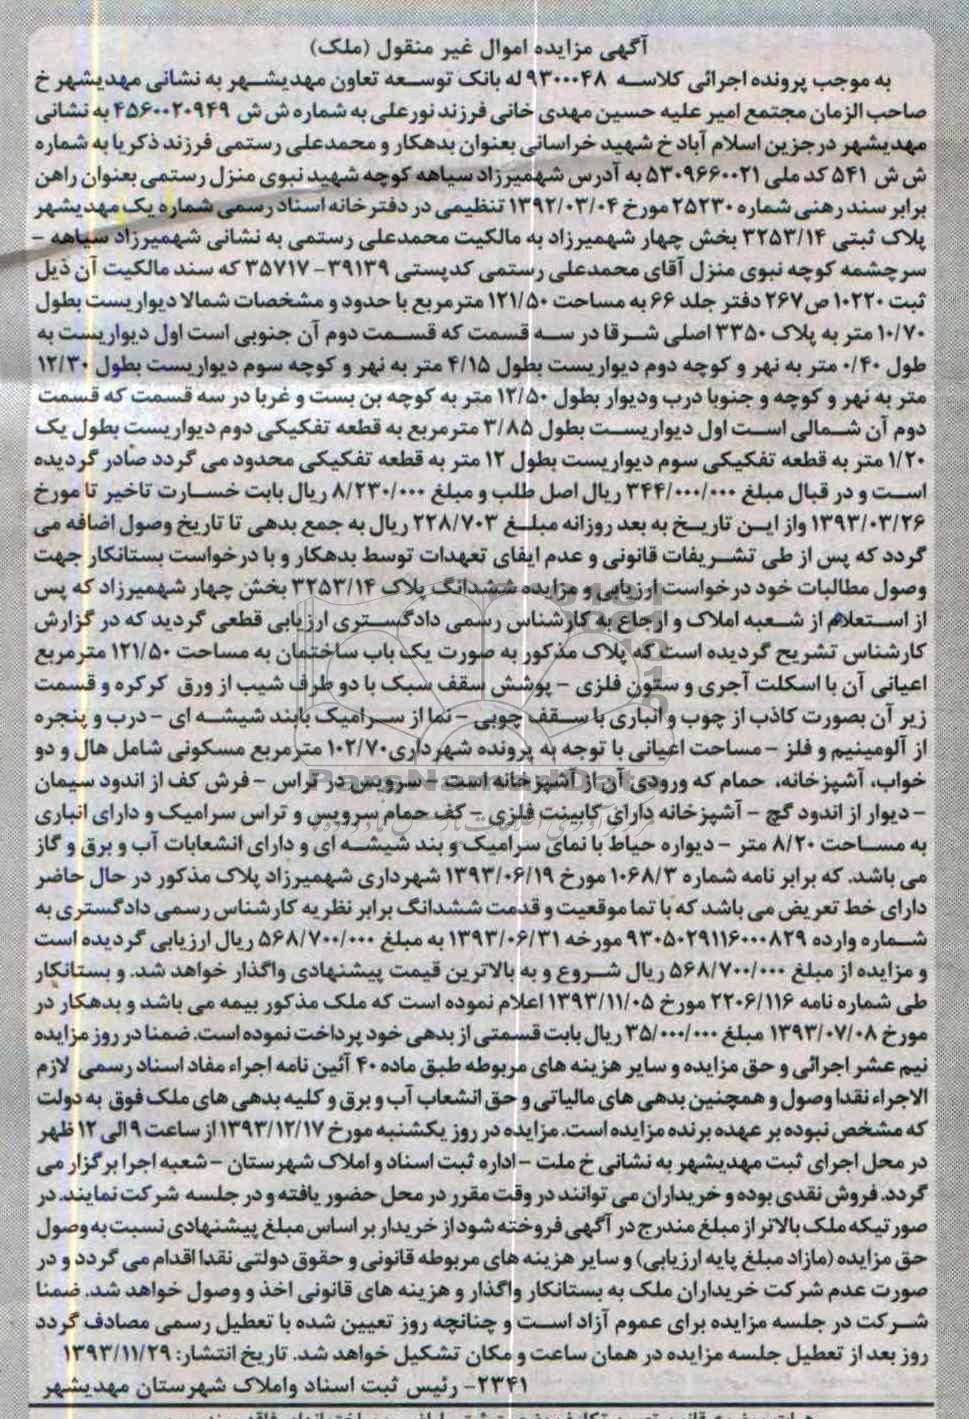 آگهی مزایده اموال غیر منقول (ملک)
به موجب پرونده اجرائی کلاسه ۹۳۰۰۰۴۸ له بانک توسعه تعاون مهدیشهر به نشانی مهدیشهر خ
صاحب الزمان مجتمع امیر علیه حسین مهدی خانی فرزند نورعلی به شماره ش ش ۴۵۶۰۰۲۰۹۴۹ به نشانی
مهدیشهر درجزین اسلام آباد خ شهید خراسانی بعنوان بدهکار و محمدعلی رستمی فرزند ذکریا به شماره
ش ش ۵۴۱ کد ملی ۵۳۰۹۶۶۰۰۲۱ به آدرس شهمیرزاد سیاهه کوچه شهید نبوی منزل رستمی بعنوان راهن
برابر سند رهنی شماره ۲۵۲۳۰ مورخ ۱۳۹۲/۰۳/۰۴ تنظیمی در دفترخانه اسناد رسمی شماره یک مهدیشهر
پلاک ثبتی ۳۲۵۳/۱۴ بخش چهار شهمیرزاد به مالکیت محمدعلی رستمی به نشانی شهمیرزاد سیاهه –
سرچشمه کوچه نبوی منزل آقای محمدعلی رستمی کدپستی ۳۹۱۳۹-۳۵۷۱۷ که سند مالکیت آن ذیل
ثبت ۱۰۲۲۰ ص۲۶۷ دفتر جلد ۶۶ به مساحت ۱۲۱/۵۰ مترمربع با حدود و مشخصات شمالا دیواریست بطول
۱۰/۷۰ متر به پلاک ۳۳۵۰ اصلی شرقا در سه قسمت که قسمت دوم آن جنوبی است اول دیواریست به
طول ۰/۴۰ متر به نهر و کوچه دوم دیواریست بطول ۴/۱۵ متر به نهر و کوچه سوم دیواریست بطول ۱۲/۳۰
متر به نهر و کوچه و جنوبا درب ودیوار بطول ۱۲/۵۰ متر به کوچه بن بست و غربا در سه قسمت که قسمت
دوم آن شمالی است اول دیواریست بطول ۳/۸۵ مترمربع به قطعه تفکیکی دوم دیواریست بطول یک
۱/۲۰ متر به قطعه تفکیکی سوم دیواریست بطول ۱۲ متر به قطعه تفکیکی محدود می گردد صادر گردیده
است و در قبال مبلغ ۳۴۴/۰۰۰/۰۰۰ ریال اصل طلب و مبلغ ۸/۲۳۰/۰۰۰ ریال بابت خسارت تاخیر تا مورخ
۱۳۹۳/۰۳/۲۶ واز این تاریخ به بعد روزانه مبلغ ۲۲۸/۷۰۳ ریال به جمع بدهی تا تاریخ وصول اضافه می
گردد که پس از طی تشریفات قانونی و عدم ایفای تعهدات توسط بدهکار و با درخواست بستانکار جهت
وصول مطالبات خود درخواست ارزیابی و مزایده ششدانگ پلاک ۳۲۵۳/۱۴ بخش چهار شهمیرزاد که پس
از استعلام از شعبه املاک و ارجاع به کارشناس رسمی دادگستری ارزیابی قطعی گردید که در گزارش
کارشناس تشریح گردیده است که پلاک مذکور به صورت یک باب ساختمان به مساحت ۱۲۱/۵۰ مترمربع
اعیانی آن با اسکلت آجری و ستون فلزی – پوشش سقف سبک با دو طرف شیب از ورق کرکره و قسمت
زیر آن بصورت کاذب از چوب و انباری با سقف چوبی – نما از سرامیک بابند شیشه ای – درب و پنجره
از آلومینیم و فلز – مساحت اعیانی با توجه به پرونده شهرداری ۱۰۲/۷۰ مترمربع مسکونی شامل هال و دو
خواب، آشپزخانه، حمام که ورودی آن از آشپزخانه است – سرویس در تراس – فرش کف از اندود سیمان
– دیوار از اندود گچ – آشپزخانه دارای کابینت فلزی – کف حمام سرویس و تراس سرامیک و دارای انباری
به مساحت ۸/۲۰ متر – دیواره حیاط با نمای سرامیک و بند شیشه ای و دارای انشعابات آب و برق و گاز
می باشد. که برابر نامه شماره ۱۰۶۸/۳ مورخ ۱۳۹۳/۰۶/۱۹ شهرداری شهمیرزاد پلاک مذکور در حال حاضر
دارای خط تعریض می باشد که با تما موقعیت و قدمت ششدانگ برابر نظریه کارشناس رسمی دادگستری به
شماره وارده ۹۳۰۵۰۲۹۱۱۶۰۰۰۸۲۹ مورخه ۱۳۹۳/۰۶/۳۱ به مبلغ ۵۶۸/۷۰۰/۰۰۰ ریال ارزیابی گردیده است
و مزایده از مبلغ ۵۶۸/۷۰۰/۰۰۰ ریال شروع و به بالاترین قیمت پیشنهادی واگذار خواهد شد. و بستانکار
طی شماره نامه ۲۲۰۶/۱۱۶ مورخ ۱۳۹۳/۱۱/۰۵ اعلام نموده است که ملک مذکور بیمه می باشد و بدهکار در
مورخ ۱۳۹۳/۰۷/۰۸ مبلغ ۳۵/۰۰۰/۰۰۰ ریال بابت قسمتی از بدهی خود پرداخت نموده است. ضمنا در روز مزایده
نیم عشر اجرائی و حق مزایده و سایر هزینه های مربوطه طبق ماده ۴۰ آئین نامه اجراء مفاد اسناد رسمی لازم
الاجراء نقدا وصول و همچنین بدهی های مالیاتی و حق انشعاب آب و برق و کلیه بدهی های ملک فوق به دولت
که مشخص نبوده بر عهده برنده مزایده است. مزایده در روز یکشنبه مورخ ۱۳۹۳/۱۲/۱۷ از ساعت ۹ الی ۱۲ ظهر
در محل اجرای ثبت مهدیشهر به نشانی خ ملت –اداره ثبت اسناد و املاک شهرستان –شعبه اجرا برگزار می
گردد. فروش نقدی بوده و خریداران می توانند در وقت مقرر در محل حضور یافته و در جلسه شرکت نمایند. در
صورتیکه ملک بالاتر از مبلغ مندرج در آگهی فروخته شود از خریدار بر اساس مبلغ پیشنهادی نسبت به وصول
حق مزایده (مازاد مبلغ پایه ارزیابی) و سایر هزینه های مربوطه قانونی و حقوق دولتی نقدا اقدام می گردد و در
صورت عدم شرکت خریداران ملک به بستانکار واگذار و هزینه های قانونی اخذ و وصول خواهد شد. ضمنا
شرکت در جلسه مزایده برای عموم آزاد است و چنانچه روز تعیین شده با تعطیل رسمی مصادف گردد
روز بعد از تعطیل جلسه مزایده در همان ساعت و مکان تشکیل خواهد شد. تاریخ انتشار: ۱۳۹۳/۱۱/۲۹
۲۳۴۱- رئیس ثبت اسناد واملاک شهرستان مهدیشهر